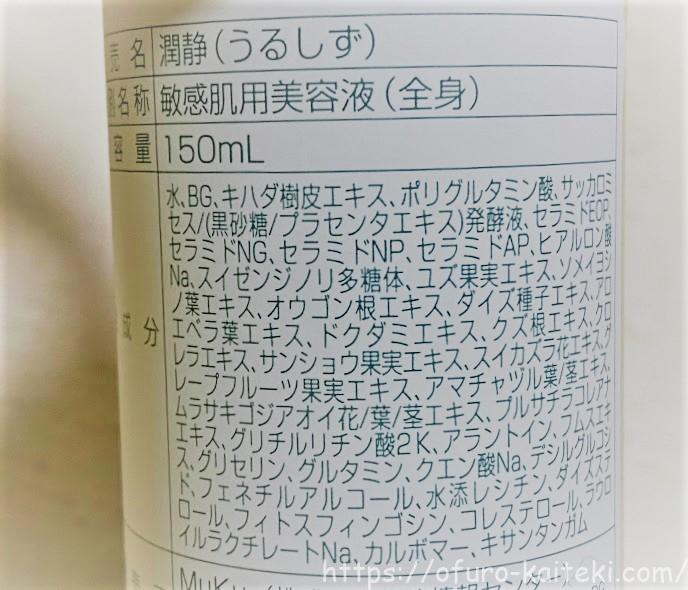 売名 潤静(うるしず)
名称 敏感肌用美容液(全身)
容量 150mL
成分
水、BG、キハダ樹皮エキス、ポリグルタミン酸、サッカロミ
セス/(黒砂糖/プラセンタエキス)発酵液、セラミドEOP、
セラミドNG、セラミドNP、セラミドAP、ヒアルロン酸
Na、スイゼンジノリ多糖体、ユズ果実エキス、ソメイヨシ
ノ葉エキス、オウゴン根エキス、ダイズ種子エキス、アロ
エベラ葉エキス、ドクダミエキス、クズ根エキス、クロ
レラエキス、サンショウ果実エキス、スイカズラ花エキス、グ
レープフルーツ果実エキス、アマチャヅル葉/茎エキス、
ムラサキゴジアオイ花/葉/茎エキス、プルサチラコレアナ
エキス、グリチルリチン酸2K、アラントイン、フムスエキ
ス、グリセリン、グルタミン、クエン酸Na、デシルグルコシ
ド、フェネチルアルコール、水添レシチン、ダイズステ
ロール、フィトスフィンゴシン、コレステロール、ラウロ
イルラクチレートNa、カルボマー、キサンタンガム
https://ofuro-kaiteki.com/